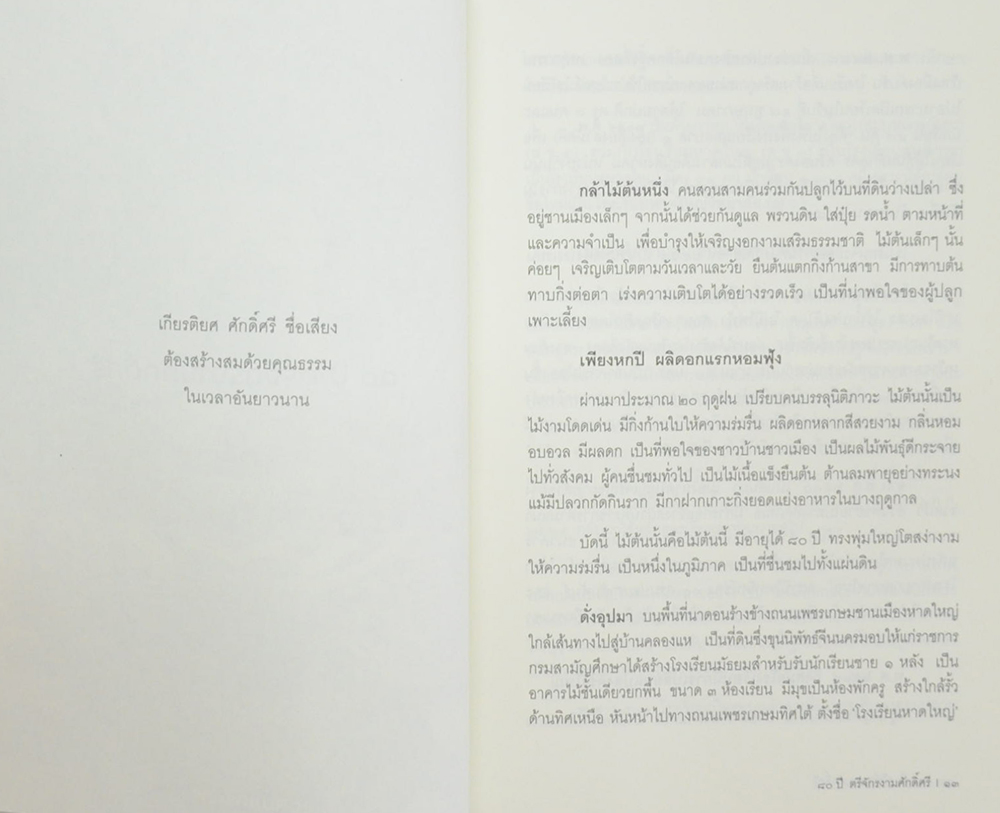 เกียรติยศ ศักดิ์ศรี ชื่อเสียง
ต้องสร้างสมด้วยคุณธรรม
ในเวลาอันยาวนาน
กล้าไม้ต้นหนึ่ง คนสวนสามคนร่วมกันปลูกไว้บนที่ดินว่างเปล่า ซึ่ง
อยู่ชานเมืองเล็กๆ จากนั้นได้ช่วยกันดูแล พรวนดิน ใส่ปุ๋ย รดน้ำ ตามหน้าที่
และความจำเป็น เพื่อบำรุงให้เจริญงอกงามเสริมธรรมชาติ ไม้ต้นเล็กๆ นั้น
ค่อยๆ เจริญเติบโตตามวันเวลาและวัย ยืนต้นแตกกิ่งก้านสาขา มีการทาบต้น
ทาบกิ่งต่อตา เร่งความเติบโตได้อย่างรวดเร็ว เป็นที่น่าพอใจของผู้ปลูก
เพาะเลี้ยง
เพียงหกปี ผลิดอกแรกหอมฟุ้ง
ผ่านมาประมาณ ๒๐ ฤดูฝน เปรียบคนบรรลุนิติภาวะ ไม้ต้นนั้นเป็น
ไม้งามโดดเด่น มีกิ่งก้านใบให้ความร่มรื่น ผลิดอกหลากสีสวยงาม กลิ่นหอม
อบอวล มีผลดก เป็นที่พอใจของชาวบ้านชาวเมือง เป็นผลไม้พันธุ์ดีกระจาย
ไปทั่วสังคม ผู้คนชื่นชมทั่วไป เป็นไม้เนื้อแข็งยืนต้น ต้านลมพายุอย่างทระนง
แม้มีปลวกกัดกินราก มีกาฝากเกาะกิ่งยอดแย่งอาหารในบางฤดูกาล
บัดนี้ ไม้ต้นนั้นคือไม้ต้นนี้ มีอายุได้ ๘๐ ปี ทรงพุ่มใหญ่โตสง่างาม
ให้ความร่มรื่น เป็นหนึ่งในภูมิภาค เป็นที่ชื่นชมไปทั้งแผ่นดิน
ดั่งอุปมา บนพื้นที่นาดอนร้างข้างถนนเพชรเกษมชานเมืองหาดใหญ่
ใกล้เส้นทางไปสู่บ้านคลองแห เป็นที่ดินซึ่งขุนนิพัทธ์จีนนครมอบให้แก่ราชการ
กรมสามัญศึกษาได้สร้างโรงเรียนมัธยมสำหรับรับนักเรียนชาย ๑ หลัง เป็น
อาคารไม้ชั้นเดียวยกพื้น ขนาด ๓ ห้องเรียน มีมุขเป็นห้องพักครู สร้างใกล้รั้ว
ด้านทิศเหนือ หันหน้าไปทางถนนเพชรเกษมทิศใต้ ตั้งชื่อ ‘โรงเรียนหาดใหญ่’
๘๐ ปี ตรีจักรงามศักดิ์ศรี | ๑๓